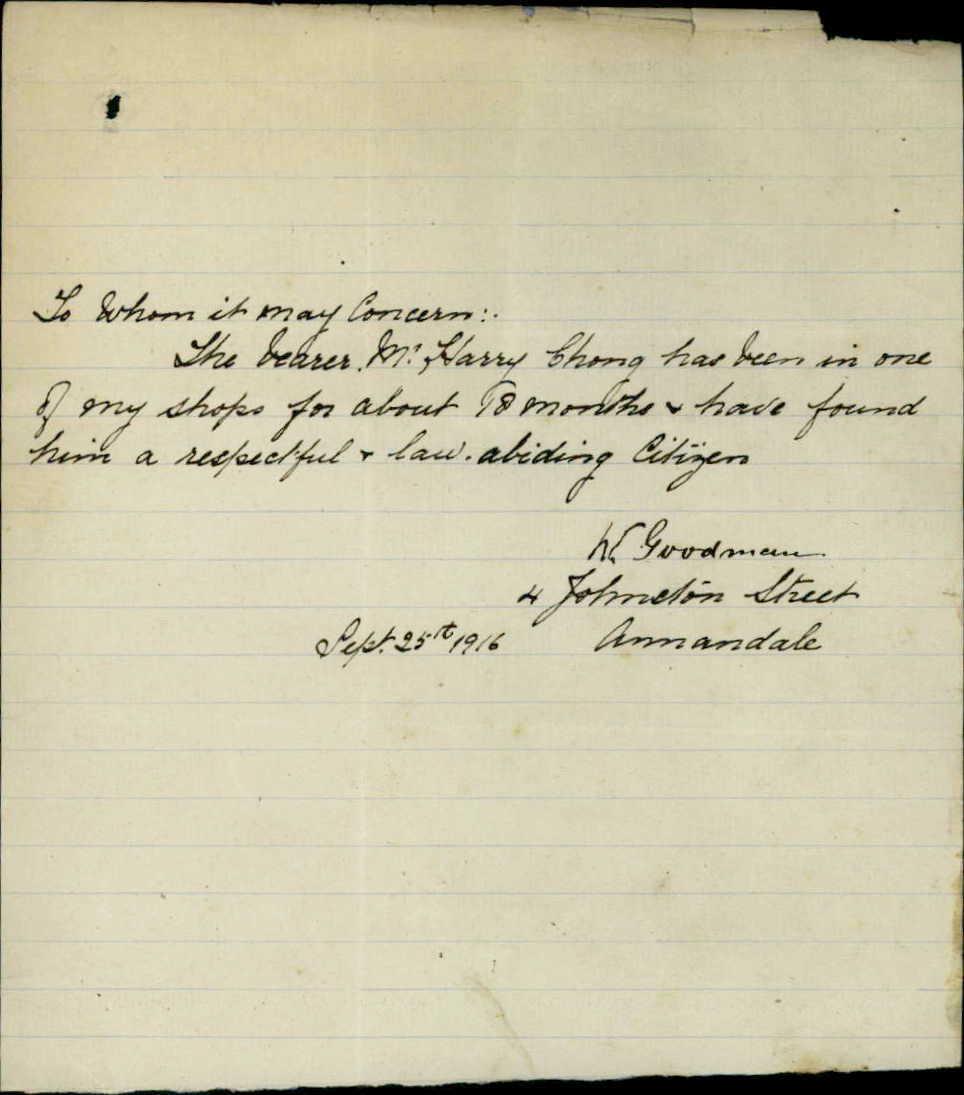 To Whom it may Concern:.
The bearer, Mr. Harry Chong has been in one
of my shops for about 18 months & have found
him a respectful & law-abiding Citizen
W. Goodman
4 Johnston Street
Sept. 25th 1916 Annandale